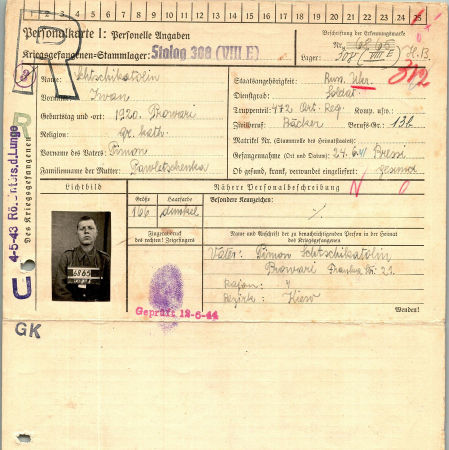 1 2 3 4 5 6 7 8 9 10 11 12 13 14 15 16 17 18 19 20 21 22 23 24 25
Personalkarte I: Personelle Angaben
Kriegsgefangenen-Stammlager: Stalag 308 (VIII E)
Beschriftung der Erkennungsmarke
Nr. 6865
Lager: 308 (VIII E)
312
Name: Schtschikatolin
Vorname: Iwan
Geburtstag und -ort: 1920. Browari
Religion: gr. kath.
Vorname des Vaters: Pimon
Familienname der Mutter: Pawletschenka
Staatsangehörigkeit: Russ. Ukr.
Dienstgrad: Soldat.
Truppenteil: 472 Art. Reg. Komp. usw.:
Zivilberuf: Bäcker Berufs-Gr.: 13b
Matrikel Nr. (Stammrolle des Heimatstaates):
Gefangennahme (Ort und Datum): 24.6.41
Ob gesund, krank, verwundet eingeliefert: gesund
N O
Des Kriegsgefangenen
4-5-43 Rö. d. Lunge
Lichtbild
Nähere Personalbeschreibung
Größe Haarfarbe Besondere Kennzeichen:
166 dunkel
Fingerabdruck
des rechten! Zeigefingers
Name und Anschrift der zu benachrichtigenden Person in der Heimat
des Kriegsgefangenen
6865
Vater: Pimon Schtschikatolin
Browari
Rajon: "
Bezirk: Kiew
Geprüft 12-5-44
Wenden!
GK